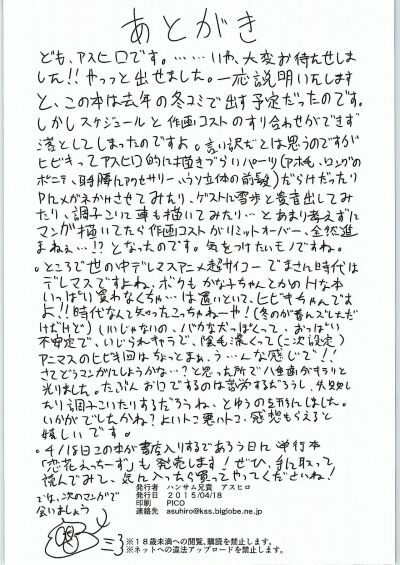 あとがき
ども、アスヒロです。……いや、大変お待たせしま
した!!やっっと出せました。一応説明いたします
と、この本は去年の冬コミで出す予定だったのです。
しかしスケジュールと作画コストのすり合わせができず
落としてしまったのですよ。言い訳だとは思うのですが
ヒビキってアスヒロ的に描きづらいパーツ(アホ毛、ロングの
ポニテ、アクセサリー、立体の前髪)だらけだったり
Pにメガネかけさせてみたり、ゲストに雪歩と春香出してみ
たり、調子こいて車も描いてみたり…とあまり考えずに
マンガ描いてたら作画コストがリミットオーバー、全然進
まねぇ…!?となったのです。気をつけたいモノですね。
。ところで世の中デレマスアニメ超サイコーでまさに時代は
デレマスですよね。ボクもかな子ちゃんとかのHな本
いっぱい買わなくちゃ…は置いといて、ヒビキちゃんです
よ!!時代なんて知ったこっちゃねーや!(冬のが春にズレただ
けだけど)(いいじゃないの、バカな犬っぽくって、おっぱい
不安定で、いじられキャラで、陰毛濃くって(二次設定)
アニマスのヒビキ回はちょっとまぁ、う…んな感じで!!
さてどうマンガにしようかな…?と思った所で八重歯がキラリと
光りました。たぶんお口でするのは苦労するだろうし、失敗し
たり調子こいたりするだろうね、とゆうの を形にしました。
いかがでしたかね?よいトコ悪いトコ、感想もらえると
嬉しいです。
。4/18日この本が書店入りするであろう日に単行本
「恋花えっちーず」も発売します!ぜひ、手に取って
読んでみて、気に入ったら買ってやってくださいね!
では、次のマンガで
会いましょう
発行者 ハンサム兄貴 アスヒロ
発行日 2015/04/18
印刷 PICO
連絡先 asuhiro@kss.biglobe.ne.jp
※18歳未満への閲覧、購読を禁止します。
※ネットへの違法アップロードを禁止します。